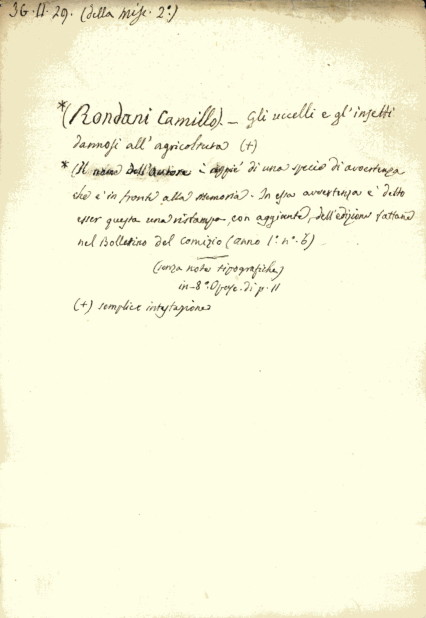 36.II.29. (della Misc. 2ª)
*(Rondani Camillo). — Gli uccelli e gl'insetti
dannosi all'agricoltura (+)
* (Il nome dell'autore è appiè di una specie di avvertenza
che è in fronte alla memoria. In essa avvertenza è detto
esser questa una ristampa, con aggiunte, dell'edizione fattane
nel Bollettino del Comizio (anno 1º. nº. 6)
(senza note tipografiche)
in-8º. Opusc. di p. 11
(+) semplice intestazione